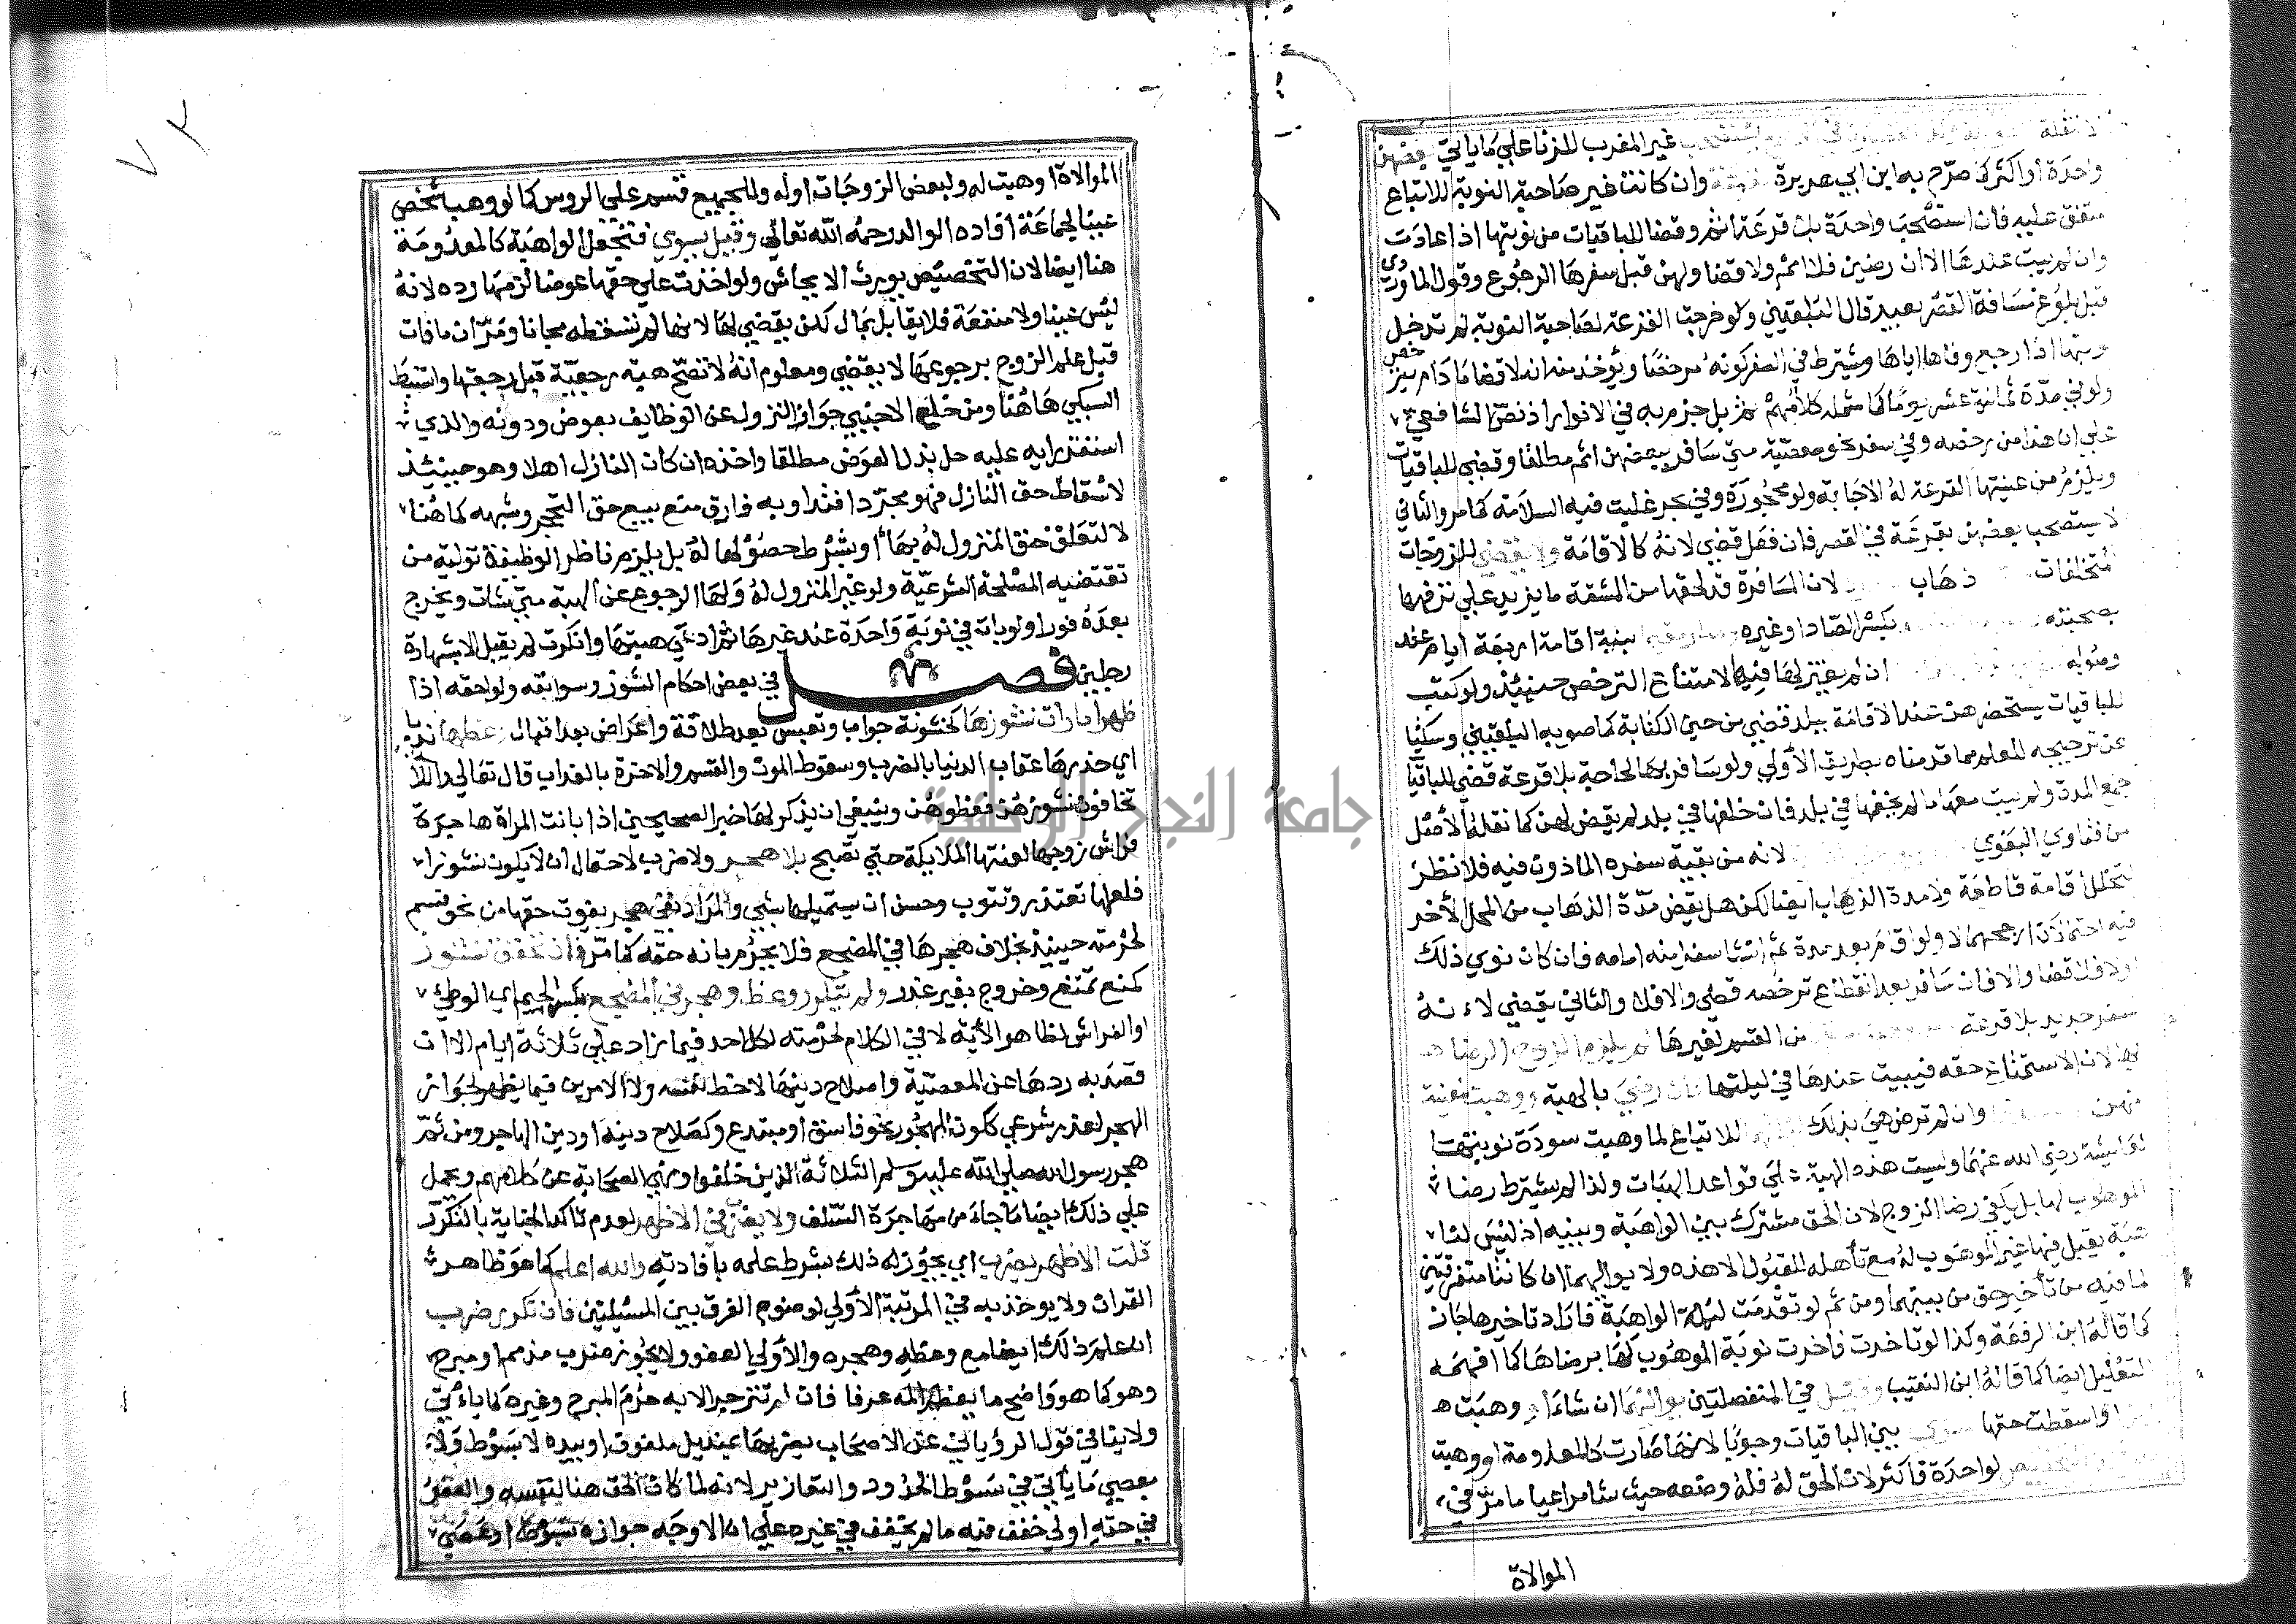 غير المقرب للزنا علي ما ياتي بعضهن
واحدة او اكثر كما صرح به ابن ابي هريرة وان كانت غير صاحبة النوبة للاتباع
متفق عليه فان استصحب واحدة بلا قرعة اثم وقضا للباقيات من نوبتها اذا عادت
وان لم يبت عندها الا ان رضين فلا اثم ولا قضا ولهن قبل سفرها الرجوع وقول الماوردي
قبل بلوغ مسافة القصر بعيد قال البلقيني ولو خرجت القرعة لصاحبة النوبة لم تدخل
نوبتها اذا رجع وفاها اياها ويشترط في السفر كونه مرخصا ويؤخذ منه انه لا قضا ما دام يترخص
ولو في مدة ثمانية عشر يوما كما شمله كلامهم ثم بل جزم به في الانوار اذ نص الشافعي
علي ان هذا من رخصه وفي سفر نحو معصية متي سافر ببعضهن اثم مطلقا وقضي للباقيات
ويلزم من عينتها القرعة له الاجابة ولو محجورة وفي بحر غلبت فيه السلامة كما مر والثاني
لا يستصحب بعضهن بقرعة في القصر فان فعل قضي لانه كالاقامة ولا يقضي للزوجات
المتخلفات ذهاب لان المسافرة قد لحقها من المشقة ما يزيد علي ترفهها
بصحبته بكسر الصاد او غيره بنية اقامة اربعة ايام عند
وصوله ان لم يعتزلها فيها لامتناع الترخص حينئذ ولو كتب
للباقيات يستحضرهن عند الاقامة ببلد قضي من حين الكتابة كما صوبه البلقيني وسكتا
عن ترجيحه للعلم مما قدمناه بطريق الأولي ولو سافر بها لحاجة بلا قرعة قضي للباقيات
جميع المدة ولم يبت معها ما لم يخلفها في بلد فان خلفها في بلد لم يقض لهن كما نقله الأصل
من فتاوي البغوي لانه من بقية سفره الماذون فيه فلا نظر
لتخلل اقامة قاطعة ولا مدة الذهاب ايضا لكن هل يقض مدة الذهاب من المحل الأخر
فيه احتمالان ارجحهما لا ولو اقام بعد مدة ثم انشا سفرا منه امامه فان كان نوي ذلك
اولا فلا قضا والا فان سافر بعد انقطاع ترخصه قضي والا فلا والثاني يقضي لانه
سفر جديد بلا قرعة من القسم لغيرها لم يلزم الزوج الرضا
لها لان الاستمتاع حقه فيبيت عندها في ليلتها فان رضي بالهبة ووهبت لمعينة
منهن وان لم ترض هي بذلك للاتباع لما وهبت سودة نوبتها
لعايشة رضي الله عنهما وليست هذه الهبة علي قواعد الهبات ولذا لم يشترط رضا
الموهوب لها بل يكفي رضا الزوج لان الحق مشترك بين الواهبة وبينه اذ ليس لنا
هبة يقبل فيها غير الموهوب له مع تأهله للقبول الا هذه ولا يواليهما ان كانتا متفرقتين
لما فيه من تأخير حق من بينهما ومن ثم لو تقدمت ليلة الواهبة فاراد تاخيرها جاز
كما قاله ابن الرفعة وكذا لو تاخرت فاخرت نوبة الموهوب لها برضاها كما افهمه
التعليل ايضا كما قاله ابن النقيب وقيل في المنفصلتين يواليهما ان شاء او وهبت
او اسقطت حقها بين الباقيات وجوبا لانها صارت كالمعدومة او وهبت
لواحدة فأكثر لان الحق له فله وضعه حيث شا مراعيا ما مر في
الموالاة
الموالاة او وهبت له ولبعض الزوجات او له وللجميع قسم علي الروس كما لو وهب شخص
عينا لجماعة افاده الوالد رحمه الله تعالي وقيل يسوي فتجعل الواهبة كالمعدومة
هنا ايضا لان التخصيص يورث الايحاش ولو اخذت علي حقها عوضا لزمها رده لانه
ليس عينا ولا منفعة فلا يقابل بمال لكن يقضي لها لانها لم تسقطه مجانا ومر ان ما فات
قبل علم الزوج برجوعها لا يقضي ومعلوم انه لا تصح هبة رجعية قبل رجعتها واستنبط
السبكي هاهنا ومن خلع الاجنبي جواز النزول عن الوظايف بعوض ودونه والذي
استقر رايه عليه حل بذل العوض مطلقا واخذه ان كان النازل اهلا وهو حينئذ
لاسقاط حق النازل فهو مجرد افتدا وبه فارق منع بيع حق التحجر وشبهه كما هنا
لا لتعلق حق المنزول له بها او بشرط حصولها له بل يلزم ناظر الوظيفة تولية من
تقتضيه المصلحة الشرعية ولو غير المنزول له ولها الرجوع عن الهبة متي شات ويخرج
بعده فورا ولو بات في نوبة واحدة عند غيرها ثم ادعي هبتها وانكرت لم يقبل الا بشهادة
رجلين فصل في بعض احكام النشوز وسوابقه ولواحقه اذا
ظهر امارات نشوزها كخشونة جواب وتعبيس بعد طلاقة واعراض بعد اقبال وعظها ندبا
اي حذرها عقاب الدنيا بالضرب وسقوط المون والقسم والاخرة بالعذاب قال تعالي واللا
تخافون نشوزهن فعظوهن وينبغي ان يذكر لها خبر الصحيحين اذا باتت المراة هاجرة
فراش زوجها لعنتها الملايكة حتي تصبح بلا هجر ولا ضرب لاحتمال ان لا يكون نشوزا
فلعلها تعتذر وتتوب وحسن ان يستميلها بشي والمراد بقي هجر يفوت حقها من نحو قسم
لحرمته حينيذ بخلاف هجرها في المضجع فلا يحرم بانه حقه كما مر فان تحقق نشوز
كمنع تمتع وخروج بغير عذر ولم يتكرر وعظ وهجر في المضجع بكسر الجيم اي الوطئ
او الفراش لظاهر الأية لا في الكلام لحرمته لكل احد فيما زاد علي ثلاثة ايام الا ان
قصد به ردها عن المعصية واصلاح دينها لا حظ نفسه ولا الامرين فيما يظهر لجواز
الهجر لعذر شرعي ككون المهجور نحو فاسق او مبتدع وكصلاح دينه او دين الهاجر ومن ثم
هجر رسول الله صلي الله عليه وسلم الثلاثة الذين خلفوا ونهي الصحابة عن كلامهم ويحمل
علي ذلك ايضا ما جاء من مهاجرة السلف ولا يضرب في الاظهر لعدم تاكد الجناية بالتكرر
قلت الاظهر يضرب اي يجوز له ذلك بشرط علمه بافادته والله اعلم كما هو ظاهر
القران ولا يوخذ به في المرتبة الأولي لوضوح الفرق بين المسئلتين فان تكرر ضرب
ان علم ذلك ايضا مع وعظه وهجره والأولي العفو ولا يجوز ضرب مذمم او مبرح
وهو كما هو واضح ما يعظم المه عرفا فان لم تنزجر الا به حرم المبرح وغيره كما ياتي
ولا ينافي قول الروياني عن الاصحاب يضربها بمنديل ملفوف او بيده لا بسوط ولا
بعصي ما يأتي في سوط الحدود والتعازير لانه لما كان الحق هنا لنفسه والعفو
في حقه اولي خفف فيه ما لم يخفف في غيره علي ان الاوجه جوازه بسوط او عصي
جامعة النجاح الوطنية
٧٢